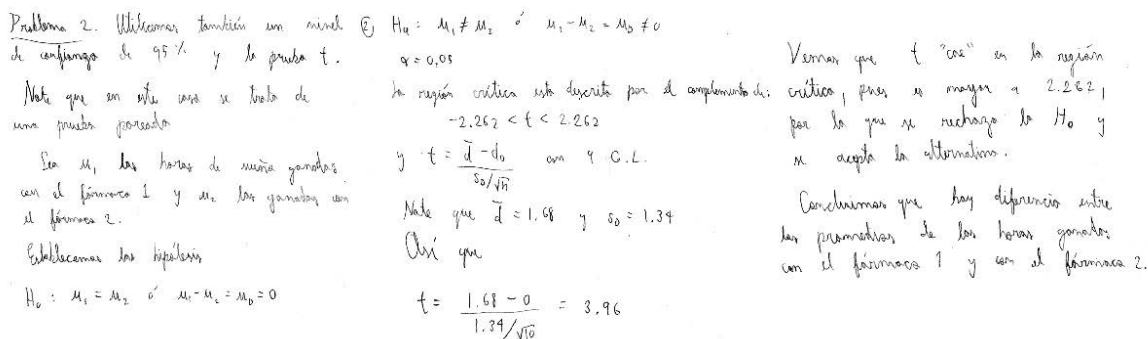 Problema 2. Utilicemos también un nivel
de confianza de 95% y la prueba t.
Note que en este caso se trata de
una prueba pareada
Sea μ₁ las horas de sueño ganadas
con el fármaco 1 y μ₂ las ganadas con
el fármaco 2.
Establecemos las hipótesis
H₀ : μ₁ = μ₂ ó μ₁-μ₂ = μ_D = 0
② Hₐ : μ₁ ≠ μ₂ ó μ₁-μ₂ = μ_D ≠ 0
α = 0,05
La región crítica está descrita por el complemento de:
-2.262 < t < 2.262
y t = (d̄ - d₀)/(s_D/√n) con 9 G.L.
Note que d̄ = 1.68 y s_D = 1.34
Así que
t = (1.68 - 0)/(1.34/√10) = 3.96
Vemos que t "cae" en la región
crítica, pues es mayor a 2.262,
por lo que se rechaza la H₀ y
se acepta la alternativa.
Concluimos que hay diferencia entre
los promedios de las horas ganadas
con el fármaco 1 y con el fármaco 2.